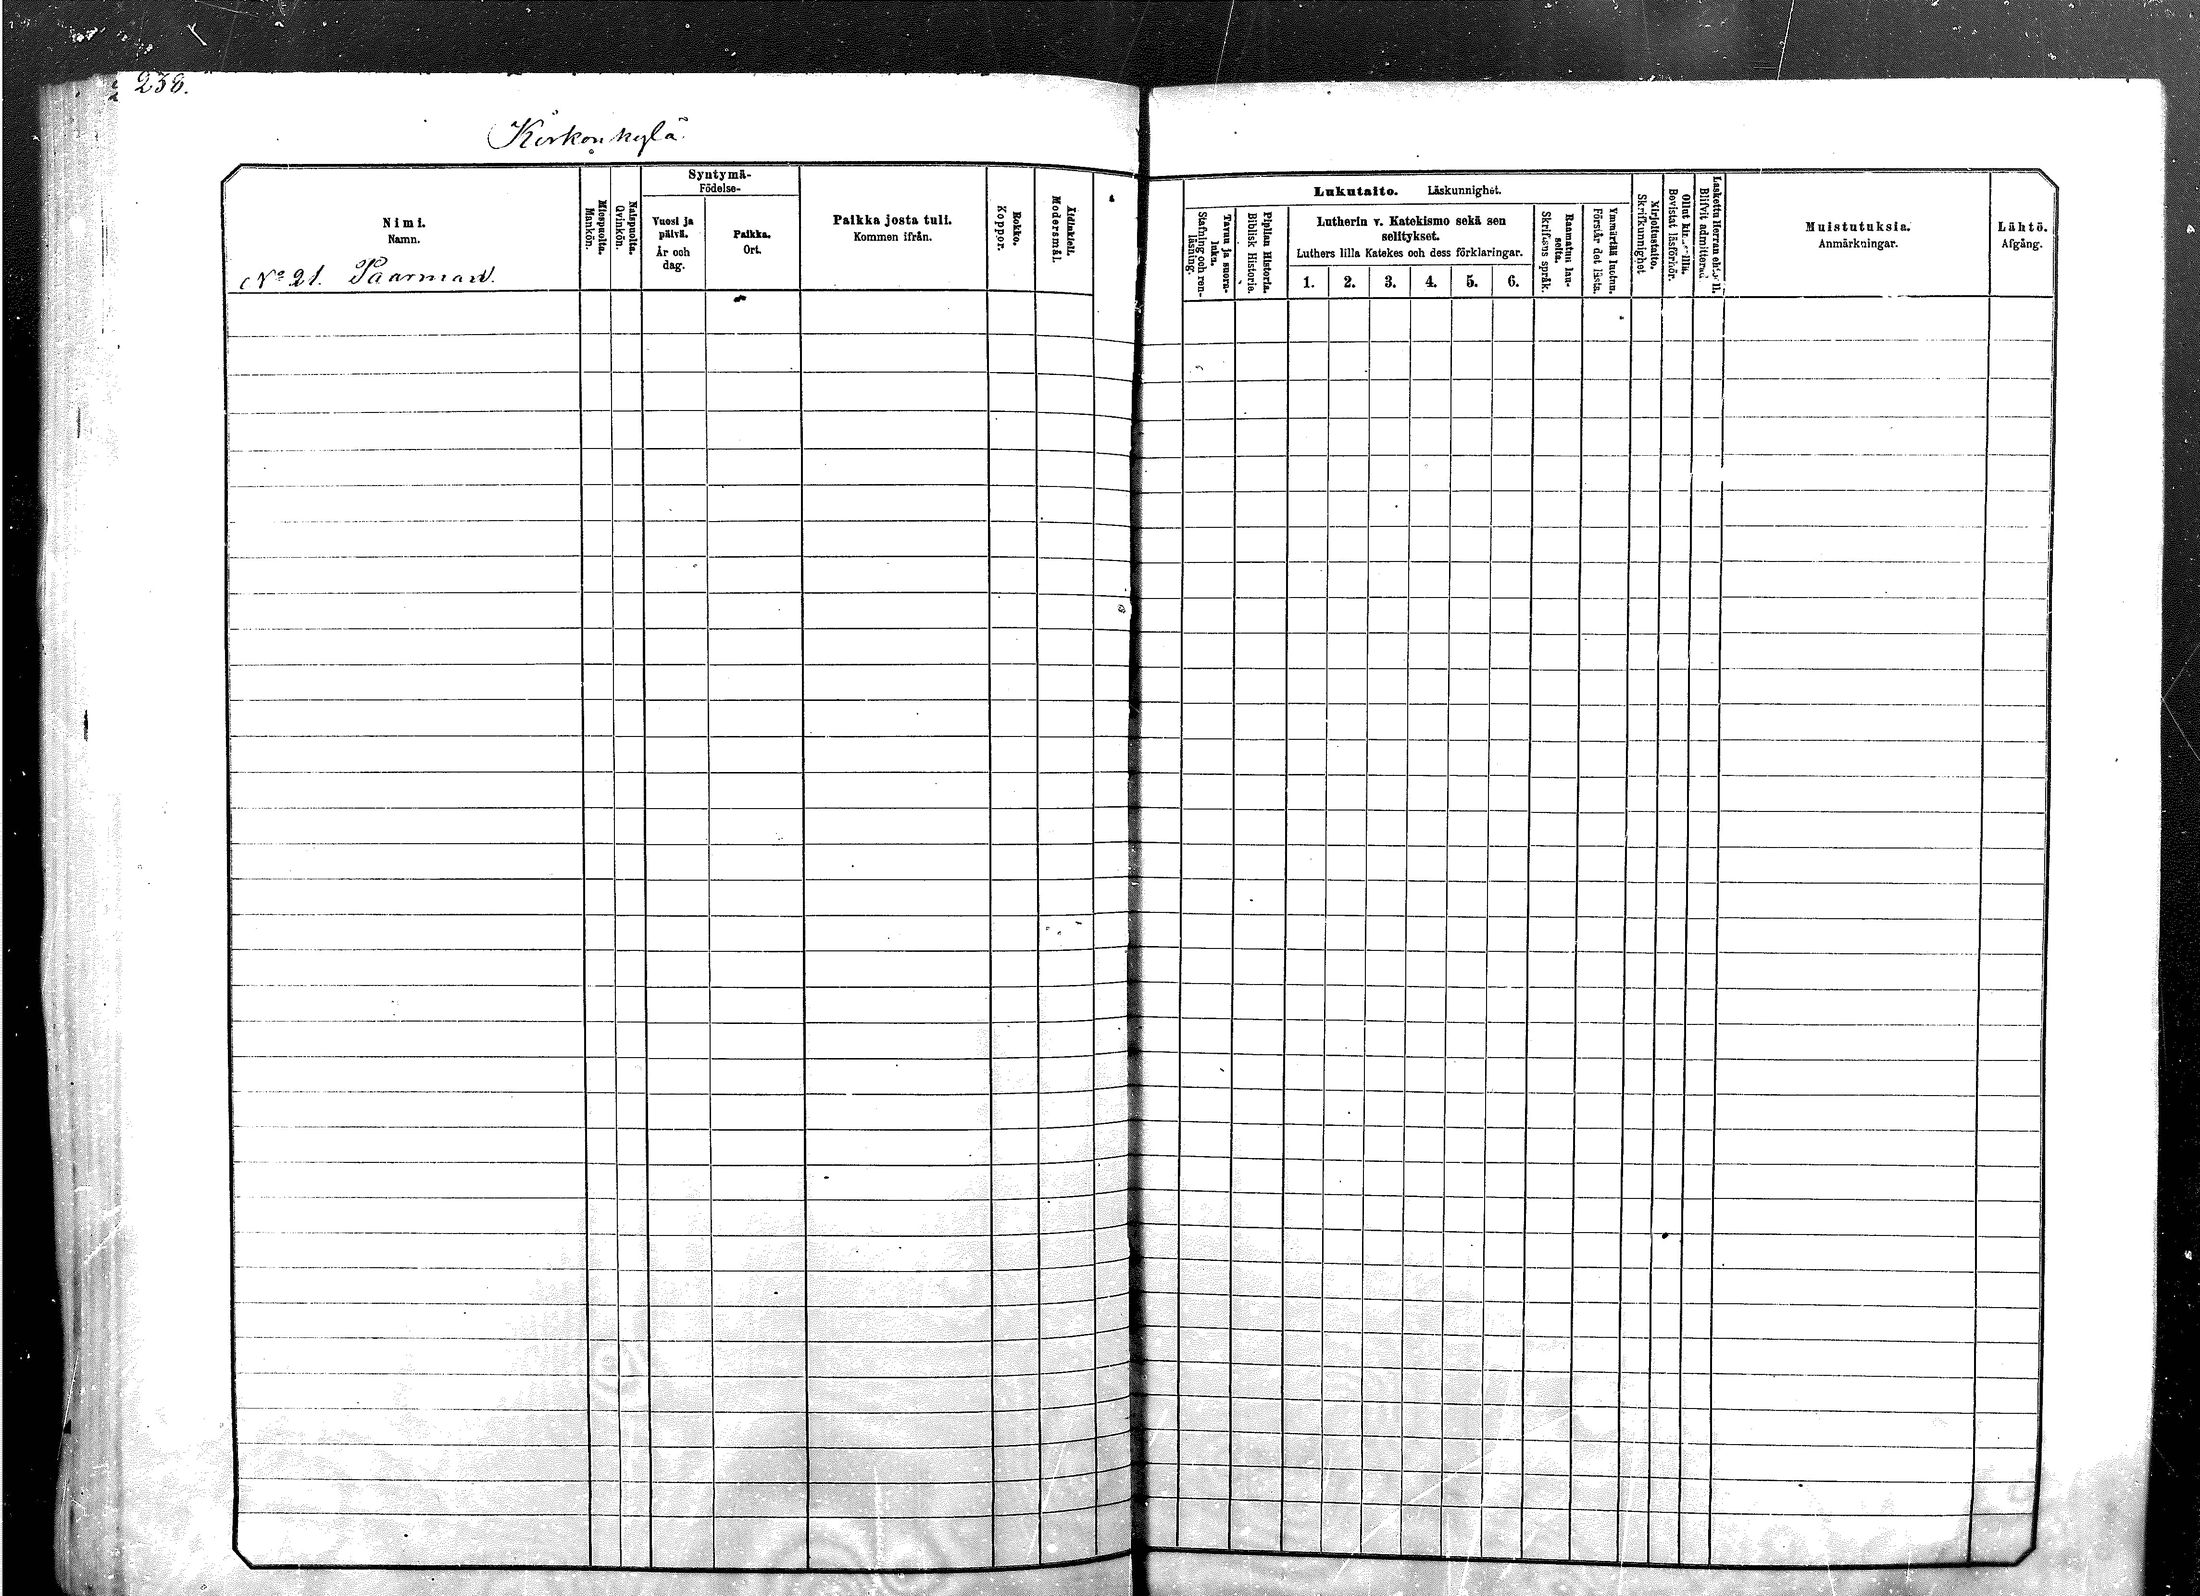 238.
Kirkonkylä
Nimi.
Namn.
No 21. Paarman
Miespuolia.
Mankön.
Naispuolia.
Qvinkön.
Syntymä-
Födelse-
Vuosi ja
päivä.
År och
dag.
Paikka.
Ort.
Paikka josta tuli.
Kommen ifrån.
Rokko.
Koppor.
Äidinkieli.
Modersmål.
Lukutaito. Läskunnighet.
Tavuu ja suora-
luku.
Stafning och ren-
läsning.
Piplian Historia.
Biblisk Historie.
Lutherin v. Katekismo sekä sen
selitykset.
Luthers lilla Katekes och dess förklaringar.
1. 2. 3. 4. 5. 6.
Raamatun lau-
seita.
Skriftens språk.
Ymmärtää luetun.
Förstår det lästa.
Kirjoitustaito.
Skrifkunnighet
Ollut
Bevistat läsförhör.
Laskettu Herran
Blifvit admitterad
Muistutuksia.
Anmärkningar.
Lähtö.
Afgång.